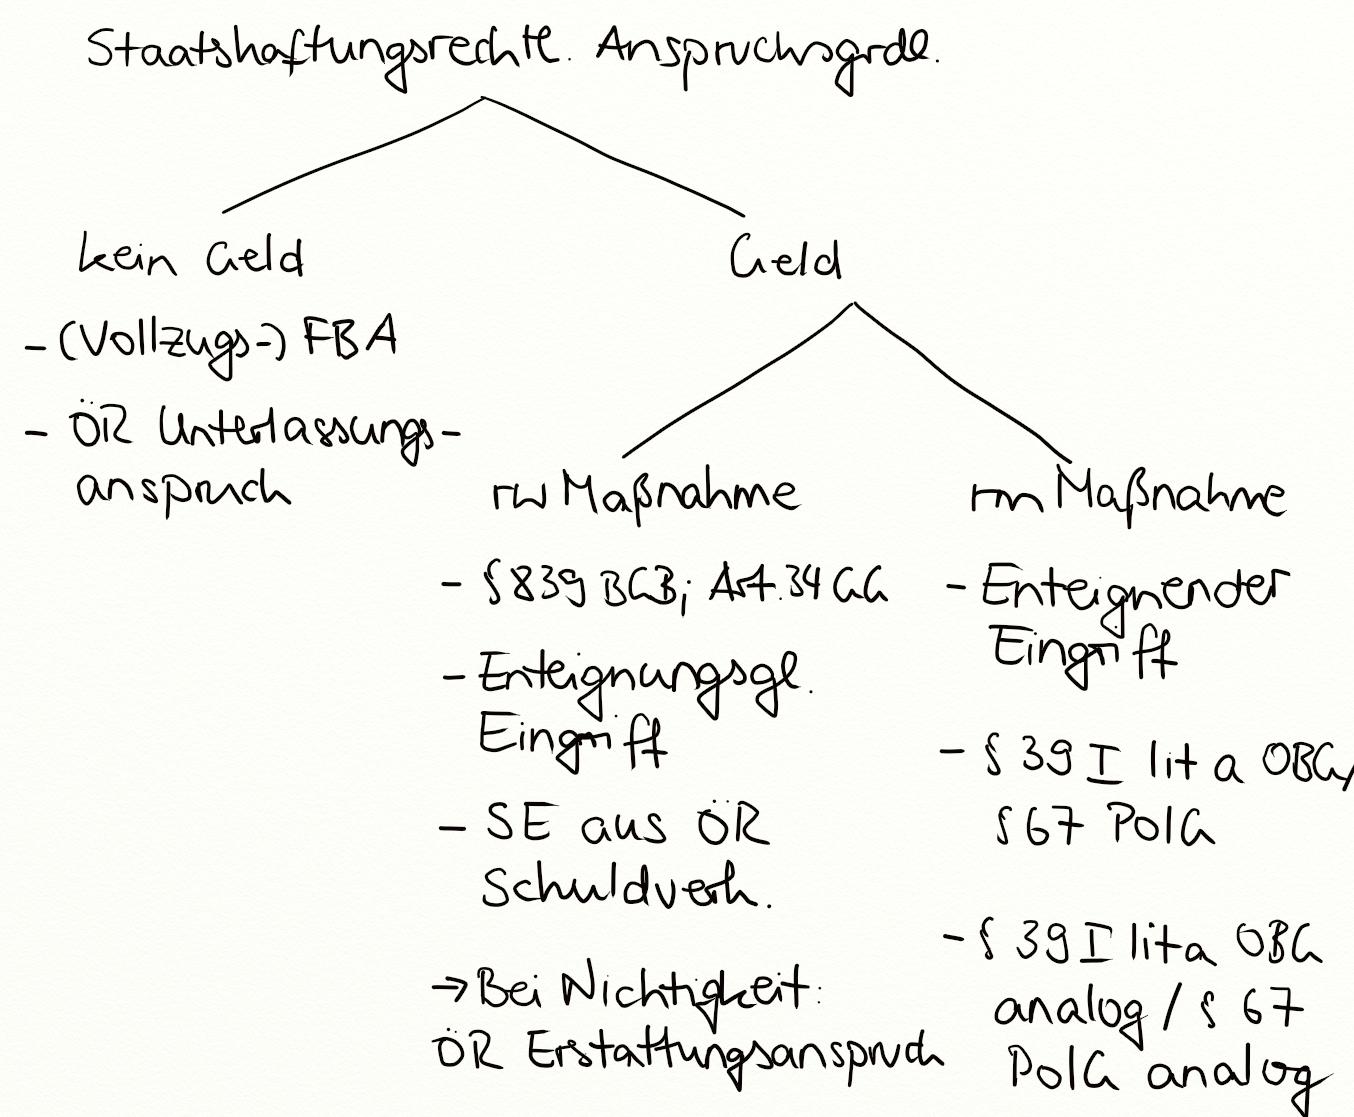 Staatshaftungsrechtl. Anspruchsgrdl.
kein Geld
- (Vollzugs-) FBA
- ÖR Unterlassungs-
anspruch
Geld
rw Maßnahme
- § 839 BGB; Art. 34 GG
- Enteignungsgl.
Eingriff
- SE aus ÖR
Schuldverh.
→ Bei Nichtigkeit:
ÖR Erstattungsanspruch
rm Maßnahme
- Enteignender
Eingriff
- § 39 I lit a OBG/
§ 67 PolG
- § 39 I lit a OBG
analog / § 67
PolG analog